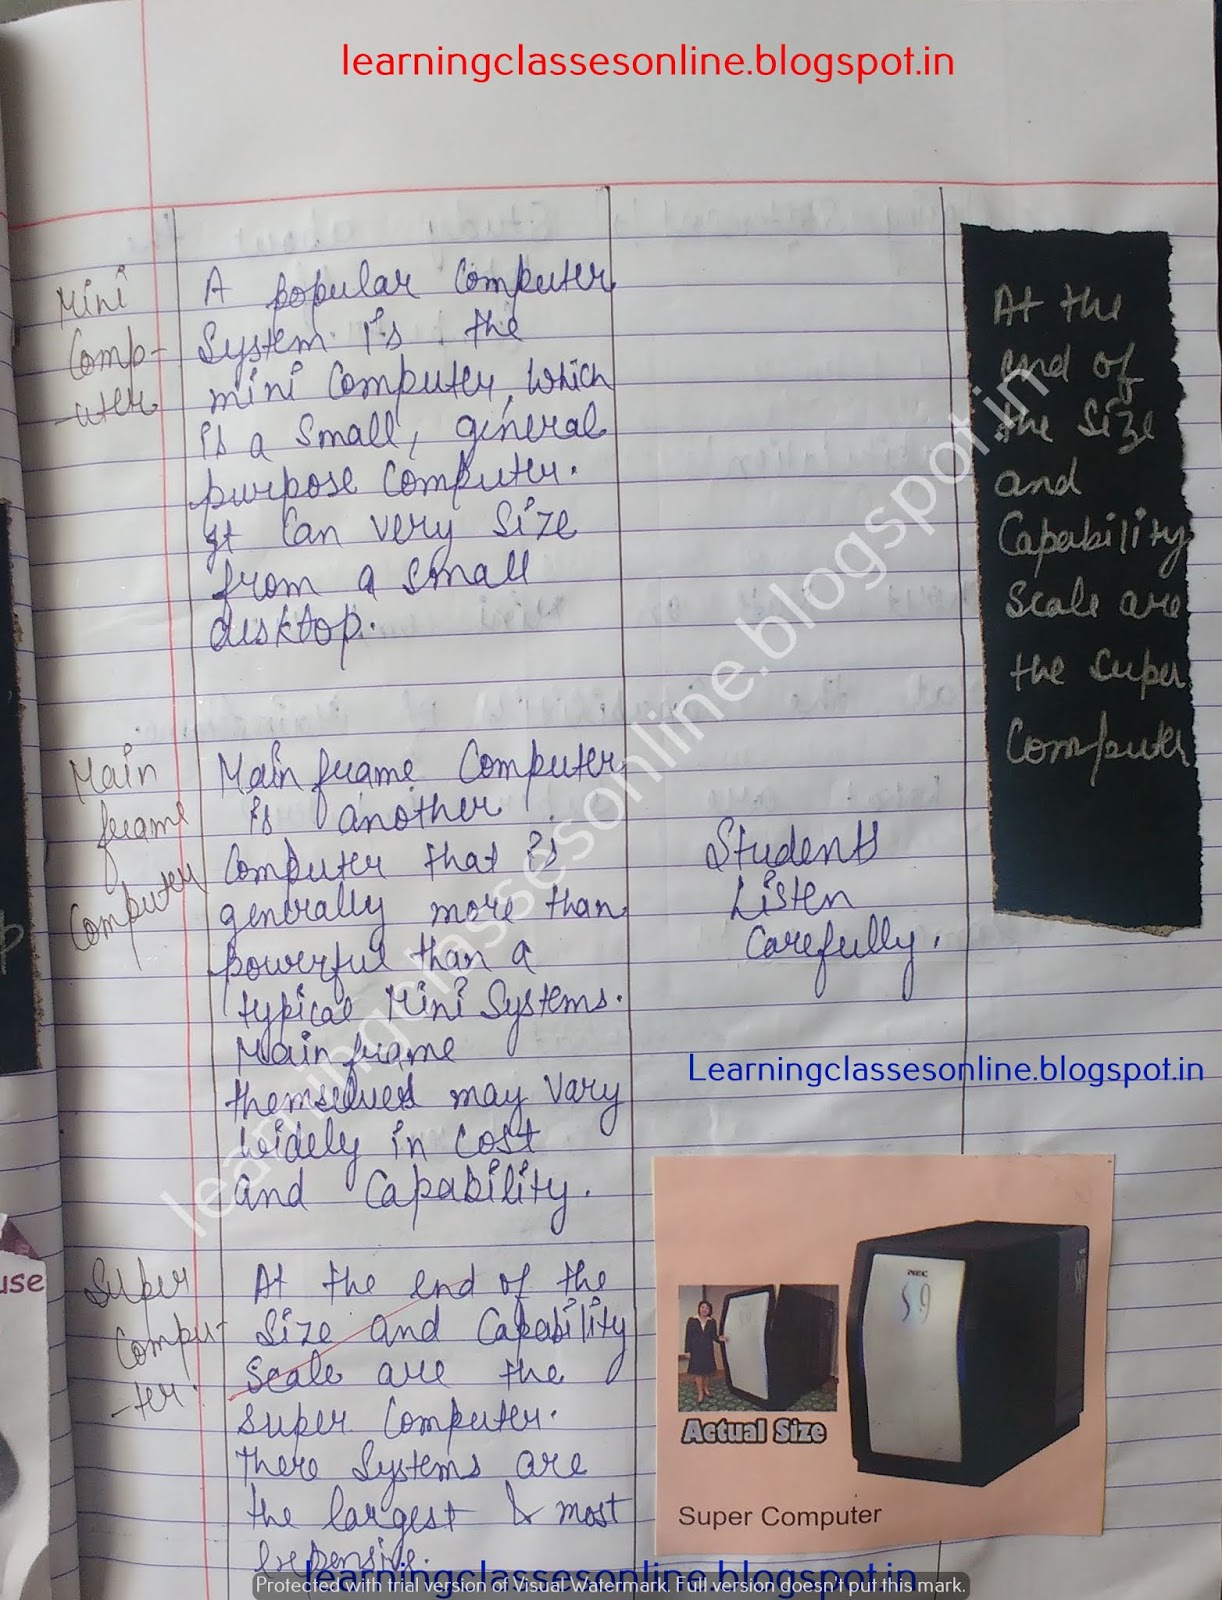 learningclassesonline.blogspot.in
Mini
Comp-
-uter
A popular Computer
System is the
mini Computer, which
is a small, general
purpose Computer.
It Can very Size
from a small
desktop.
Main
frame
Computer
Main frame Computer
is another
Computer that is
generally more than
powerful than a
typical Mini Systems.
Main frame
themselves may vary
widely in cost
and Capability.
Students
Listen
Carefully.
At the
end of
the Size
and
Capability
Scale are
the super
Computer
learningclassesonline.blogspot.in
Learningclassesonline.blogspot.in
Super
Compu-
-ter.
At the end of the
Size and Capability
Scale are the
super Computer.
There Systems are
the largest & most
Expensive.
use
NEC
S9
Actual Size
Super Computer
learningclassesonline.blogspot.in
Protected with trial version of Visual Watermark. Full version doesn't put this mark.